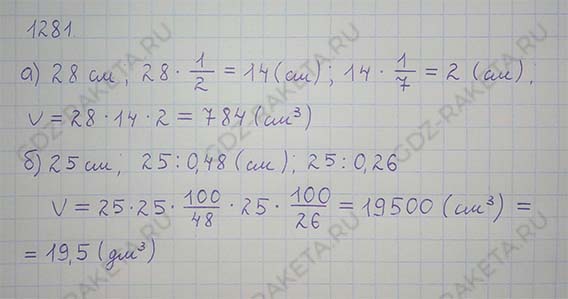 1281
а) 28 см; 28 · 1/2 = 14 (см); 14 · 1/7 = 2 (см);
V = 28 · 14 · 2 = 784 (см³)
б) 25 см; 25 : 0,48 (см); 25 : 0,26
V = 25 · 25 · 100/48 · 25 · 100/26 = 19500 (см³) =
= 19,5 (дм³)
GDZ-RAKETA.RU